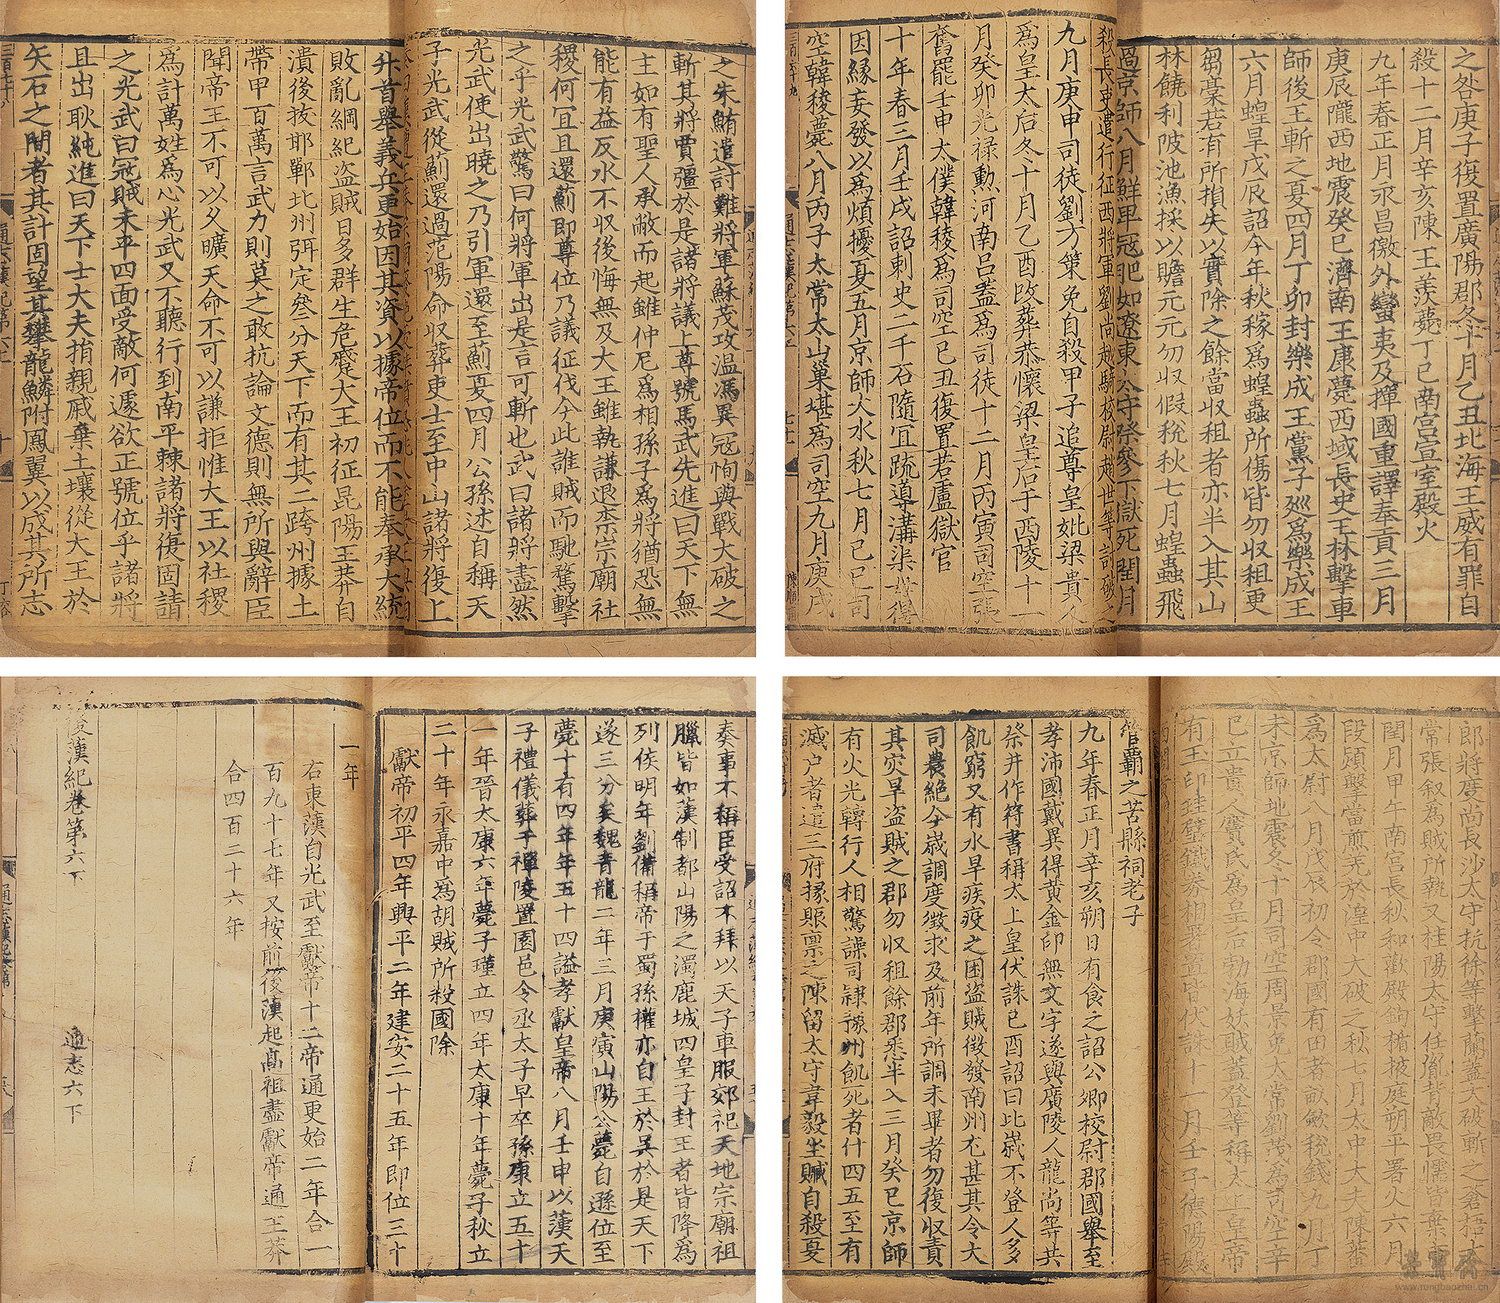 之朱鮪遣討難將軍蘇茂攻温馮異寇恂與戰大破之
斬其將賈彊於是諸將議上尊號馬武先進曰天下無
主如有聖人承敝而起雖仲尼爲相孫子爲將猶恐無
能有益反水不收後悔無及大王雖執謙退柰宗廟社
稷何宜且還薊即尊位乃議征伐今此誰賊而馳騖擊
之乎光武驚曰何將軍出是言可斬也武曰諸將盡然
光武使出曉之乃引軍還至薊夏四月公孫述自稱天
子光武從薊還過范陽命收葬吏士至中山諸將復上
升首舉義兵更始因其資以據帝位而不能奉承大統
敗亂綱紀盗賊日多群生危蹙大王初征昆陽王莽自
潰後拔邯鄲北州弭定叄分天下而有其二跨州據土
帶甲百萬言武力則莫之敢抗論文德則無所與辭臣
聞帝王不可以久曠天命不可以謙拒惟大王以社稷
爲計萬姓爲心光武又不聽行到南平棘諸將復固請
之光武曰冦賊未平四面受敵何遽欲正號位乎諸將
且出耿純進曰天下士大夫捐親戚棄土壤從大王於
矢石之間者其計固望其攀龍鱗附鳳翼以成其所志
之咎庚子復置廣陽郡冬十月乙丑北海王威有罪自
殺十二月辛亥陳王羡薨丁巳南宫宣室殿火
九年春正月永昌徼外蠻夷及撣國重譯奉貢三月
庚辰隴西地震癸巳濟南王康薨西域長史王林擊車
師後王斬之夏四月丁卯封樂成王黨子巡爲樂成王
六月蝗旱戊辰詔今年秋稼爲蝗蟲所傷皆勿收租更
芻稾若有所損失以實除之餘當收租者亦半入其山
林饒利陂池漁採以贍元元勿收假稅秋七月蝗蟲飛
過京師八月鮮卑冦肥如遼東太守祭參下獄死閏月
殺長吏遣行征西將軍劉尚越騎校尉趙世等討破之
九月庚申司徒劉方策免自殺甲子追尊皇妣梁貴人
爲皇太后冬十月乙酉改葬恭懷梁皇后于西陵十一
月癸卯光禄勲河南吕蓋爲司徒十二月丙寅司空張
奮罷壬申太僕韓稜爲司空己丑復置若盧獄官
十年春三月壬戌詔刺史二千石隨宜疏導溝渠毋得
因緣妄發以爲煩擾夏五月京師大水秋七月己巳司
空韓稜薨八月丙子太常太山巢堪爲司空九月庚戌
奏事不稱臣受詔不拜以天子車服郊祀天地宗廟祖
臘皆如漢制都山陽之濁鹿城四皇子封王者皆降爲
列侯明年劉備稱帝于蜀孫權亦自王於吳於是天下
遂三分矣魏青龍二年三月庚寅山陽公薨自遜位至
薨十有四年年五十四謚孝獻皇帝八月壬申以漢天
子禮儀葬于禪陵置園邑令丞太子早卒孫康立五十
一年晉太康六年薨子瑾立四年太康十年薨子秋立
二十年永嘉中爲胡賊所殺國除
獻帝初平四年興平二年建安二十五年即位三十
一年
右東漢自光武至獻帝十二帝通更始二年合一
百九十七年又按前後漢起高祖盡獻帝通王莽
合四百二十六年
後漢紀卷第六下
通志六下
郎將度尚長沙太守抗徐等擊蘭蓋大破斬之蒼梧
常張叙爲賊所執又桂陽太守任胤背敵畏懦皆棄
閏月甲午南宫長秋和歡殿鉤楯掖庭朔平署火六月
段熲擊當煎羌於湟中大破之秋七月太中大夫陳蕃
爲太尉八月戊辰初令郡國有田者畝斂稅錢九月丁
未京師地震冬十月司空周景免太常劉茂爲司空辛
巳立貴人竇氏爲皇后勃海妖賊蓋登等稱太上皇帝
有玉印珪璧鐵券相署置皆伏誅十一月壬子德陽殿
管霸之苦縣祠老子
九年春正月辛亥朔日有食之詔公卿校尉郡國舉至
孝沛國戴異得黄金印無文字遂與廣陵人龍尚等共
祭井作符書稱太上皇伏誅己酉詔曰比歲不登人多
飢窮又有水旱疾疫之困盗賊徵發南州尤甚其令大
司農絶今歲調度徵求及前年所調未畢者勿復收責
其灾旱盗賊之郡勿收租餘郡悉半入三月癸巳京師
有火光轉行人相驚譟司隷豫州飢死者什四五至有
滅户者遣三府掾賑禀之陳留太守韋毅坐贓自殺夏
榮寶齋
www.rongbaozhai.cn